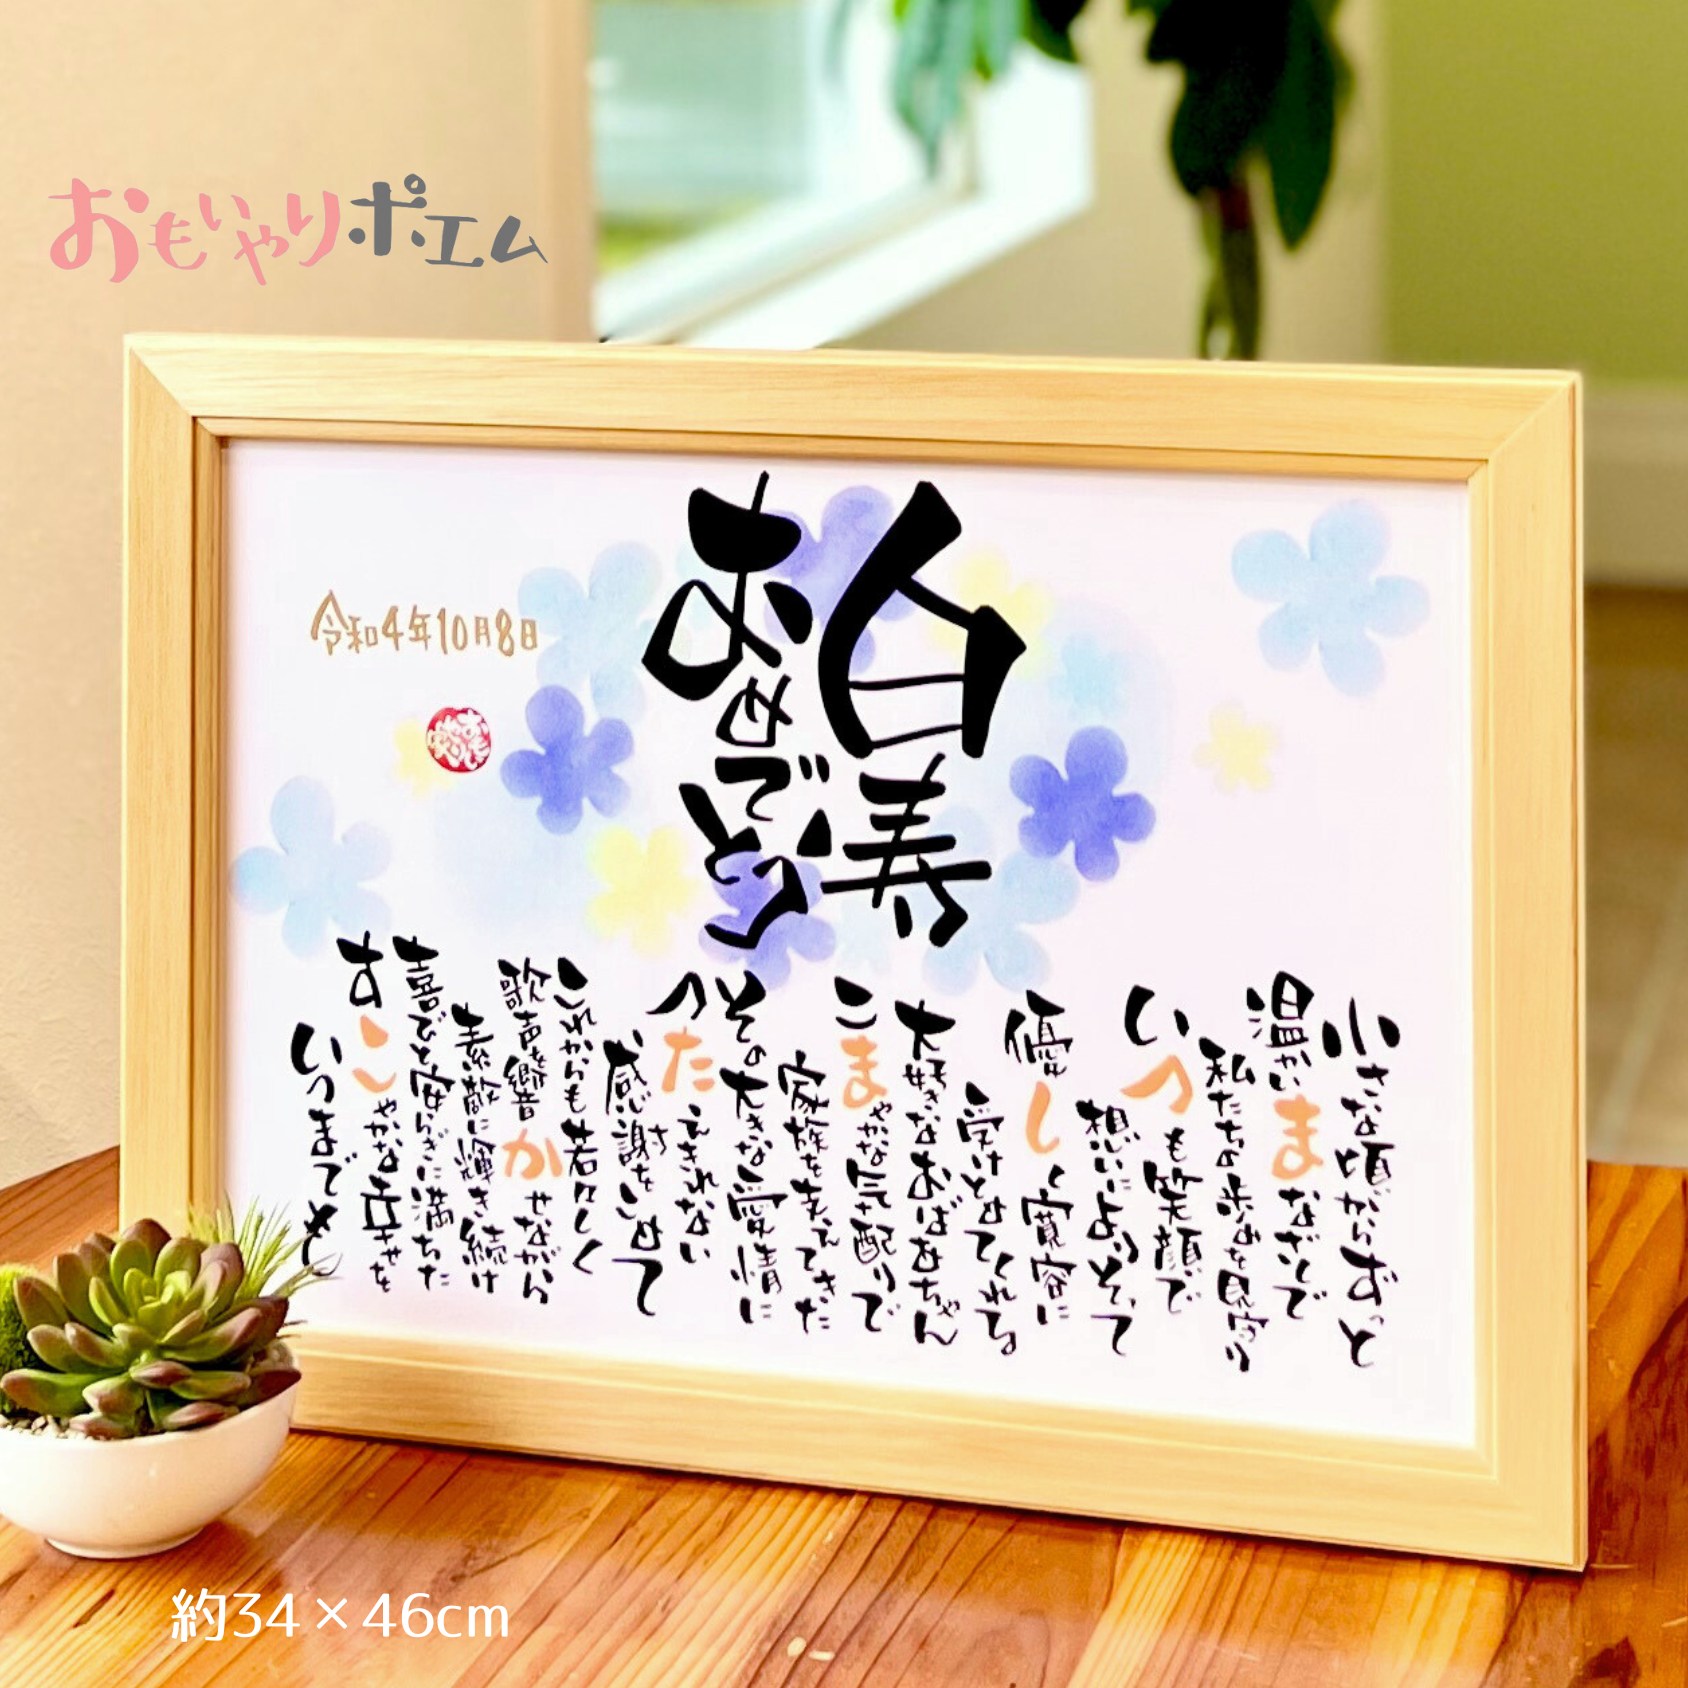 おもいやりポエム
白寿
おめでとう
令和4年10月8日
小さな頃からずっと
温かいまなざしで
私たちの歩みを見守り
いつも笑顔で
想いによりそって
優しく寛容に
受けとめてくれる
大好きなおばあちゃん
こまやかな気配りで
家族を支えてきた
その大きな愛情に
つたえきれない
感謝をこめて
これからも若々しく
歌声を響かせながら
素敵に輝き続け
喜びと安らぎに満ちた
すこしやかな幸せを
いつまでも
約34×46cm